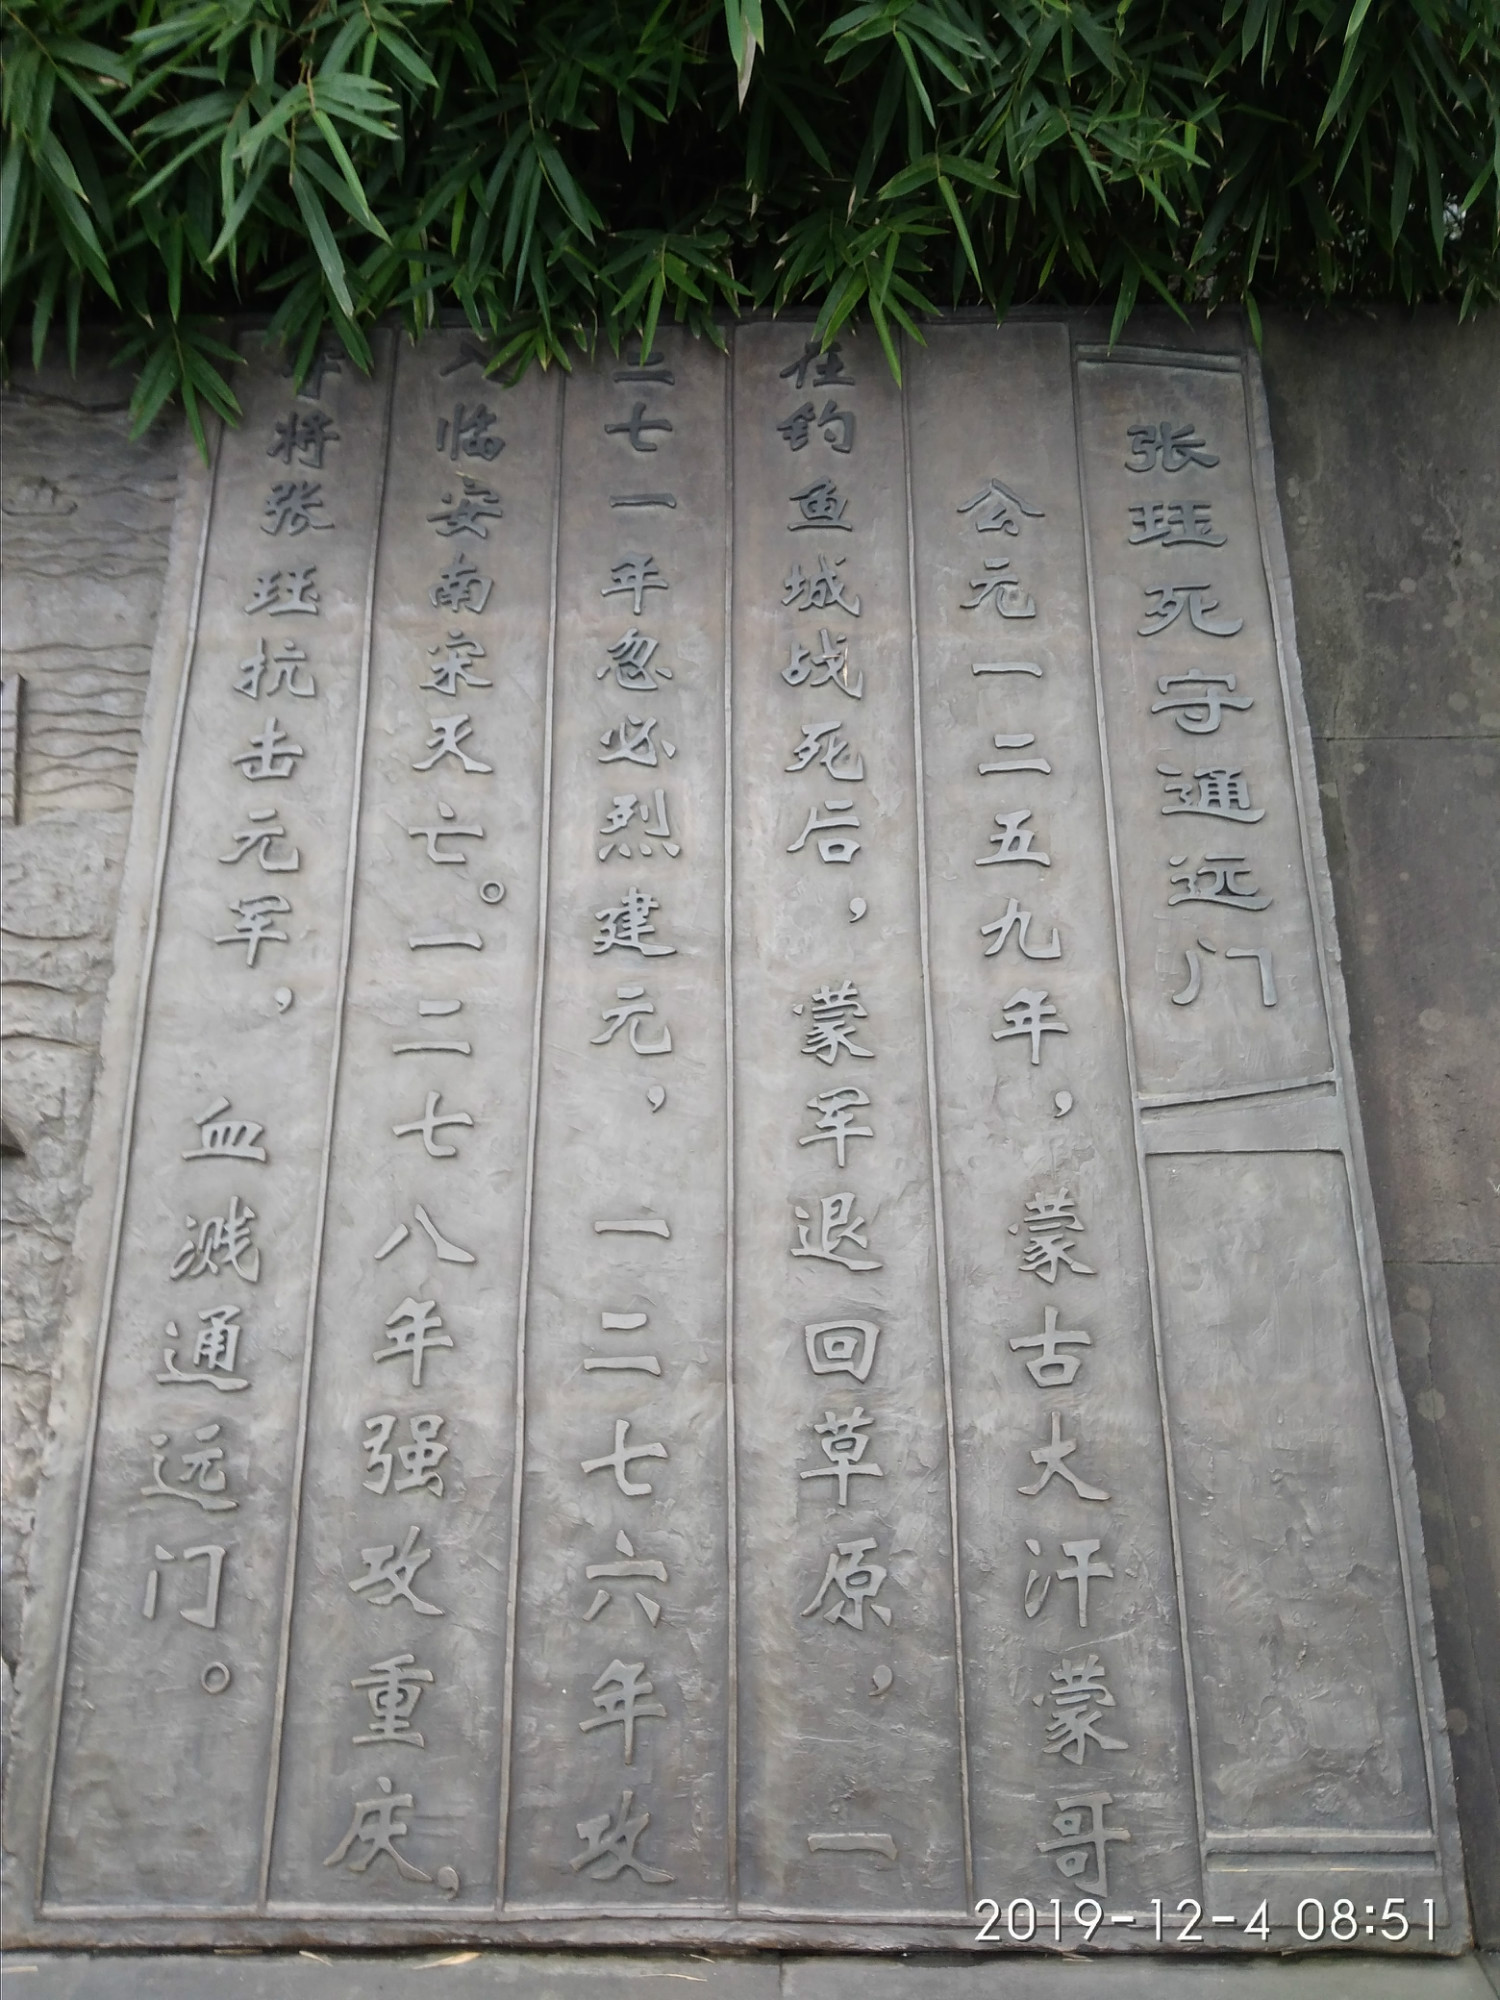 张珏死守通远门
公元一二五九年，蒙古大汗蒙哥
在钓鱼城战死后，蒙军退回草原，一
二七一年忽必烈建元，一二七六年攻
入临安南宋灭亡。一二七八年强攻重庆，
将张珏抗击元军，血溅通远门。
2019-12-4 08:51